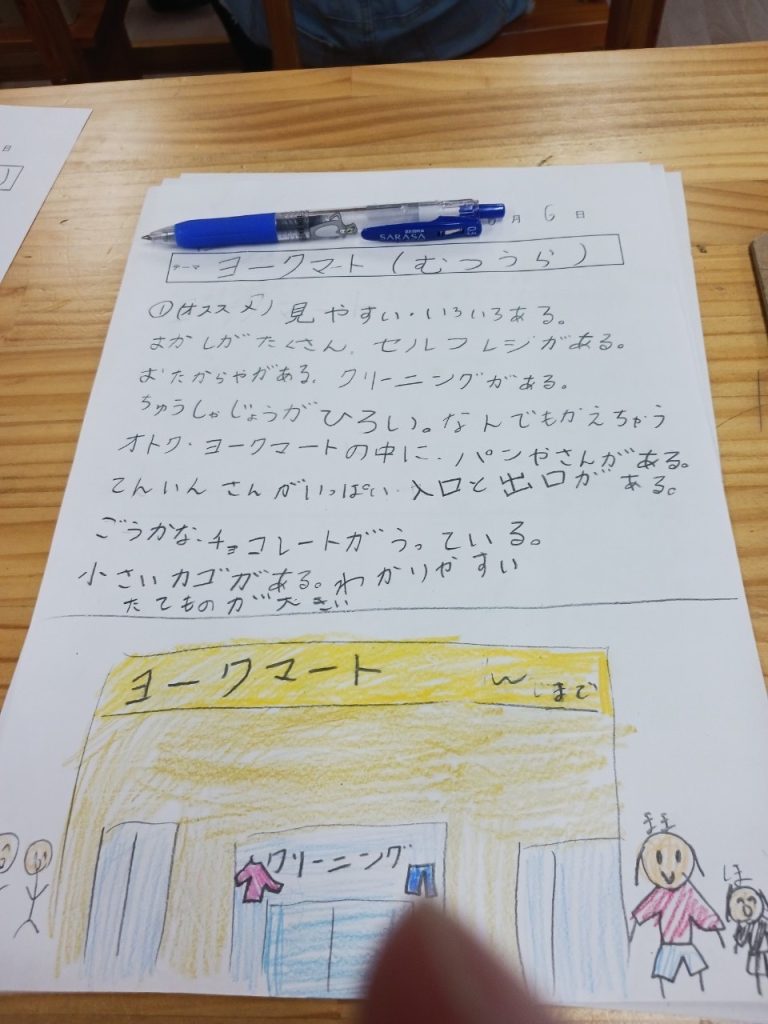 日
月 6 日
SARASA
テーマ ヨークマート(むつうら)
①(オススメ) 見やすい・いろいろある。
おかしがたくさん、セルフレジがある。
おたからやがある、クリーニングがある。
ちゅうしゃじょうがひろい。なんでもかえちゃう
オトク・ヨークマートの中に、パンやさんがある。
てんいんさんがいっぱい・入口と出口がある。
ごうかな、チョコレートがうっている。
小さいカゴがある。わかりやすい
たてものが大きい
ヨークマート
まで
クリーニング
まま
ほ